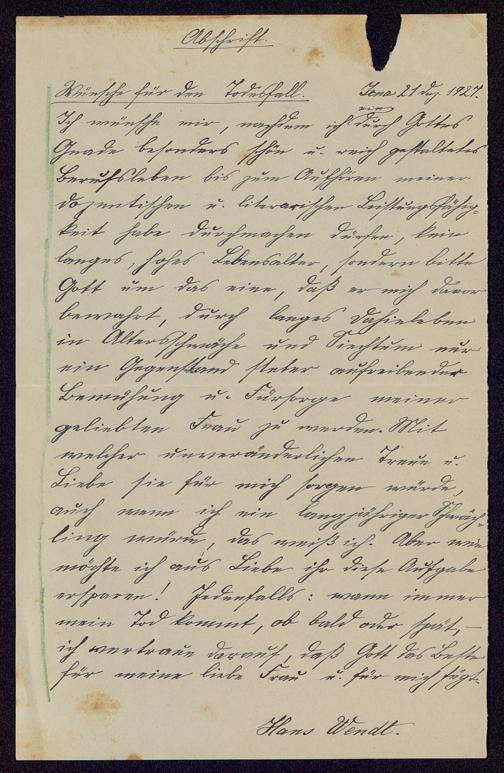 Abschrift.
Wünsche für den Todesfall. Jena 21 Dez. 1927.
Ich wünsche mir, nachdem ich ein durch Gottes
Gnade besonders schön u. reich gestaltetes
Berufsleben bis zum Aufhören meiner
dozentischen u. literarischen Leistungsfähig-
keit habe durchmachen dürfen, kein
langes, hohes Lebensalter, sondern bitte
Gott um das eine, daß er mich davor
bewahrt, durch langes Dahinleben
in Altersschwäche und Siechtum nur
ein Gegenstand steter aufreibender
Bemühung u. Fürsorge meiner
geliebten Frau zu werden. Mit
welcher unveränderlichen Treue u.
Liebe sie für mich sorgen würde,
auch wenn ich ein langjähriger Schwäch-
ling würde, das weiß ich. Aber wie
möchte ich aus Liebe ihr diese Aufgabe
ersparen! Jedenfalls: wann immer
mein Tod kommt, ob bald oder spät, –
ich vertraue darauf, daß Gott das Beste
für meine liebe Frau u. für mich fügt.
Hans Wendt.